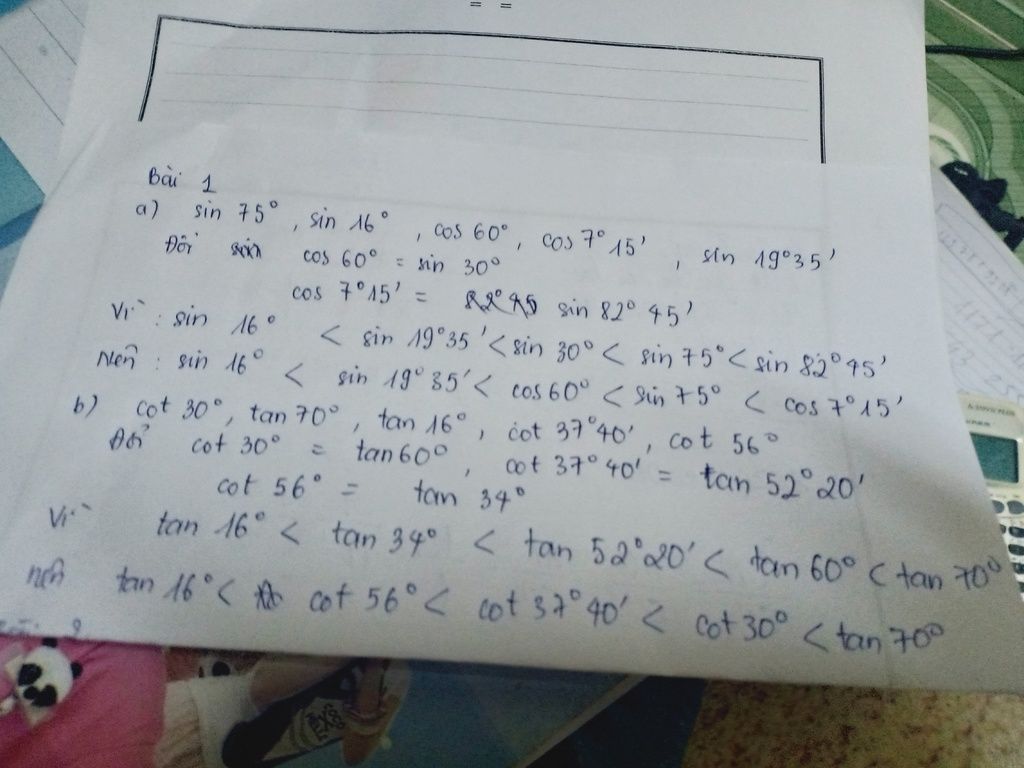 Bài 1
a) sin 75°, sin 16°, cos 60°, cos 7°15', sin 19°35'
Đổi cos 60° = sin 30°
cos 7°15' = sin 82°45'
Vì : sin 16° < sin 19°35' < sin 30° < sin 75° < sin 82°45'
Nên : sin 16° < sin 19°35' < cos 60° < sin 75° < cos 7°15'
b) cot 30°, tan 70°, tan 16°, cot 37°40', cot 56°
Đổi cot 30° = tan 60°, cot 37°40' = tan 52°20'
cot 56° = tan 34°
Vì tan 16° < tan 34° < tan 52°20' < tan 60° < tan 70°
nên tan 16° < cot 56° < cot 37°40' < cot 30° < tan 70°